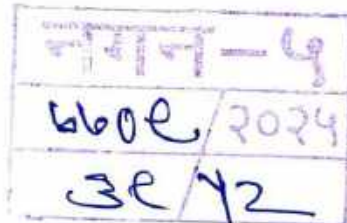 नगन - ५
७७०९ / २०२५
३९ / ५२